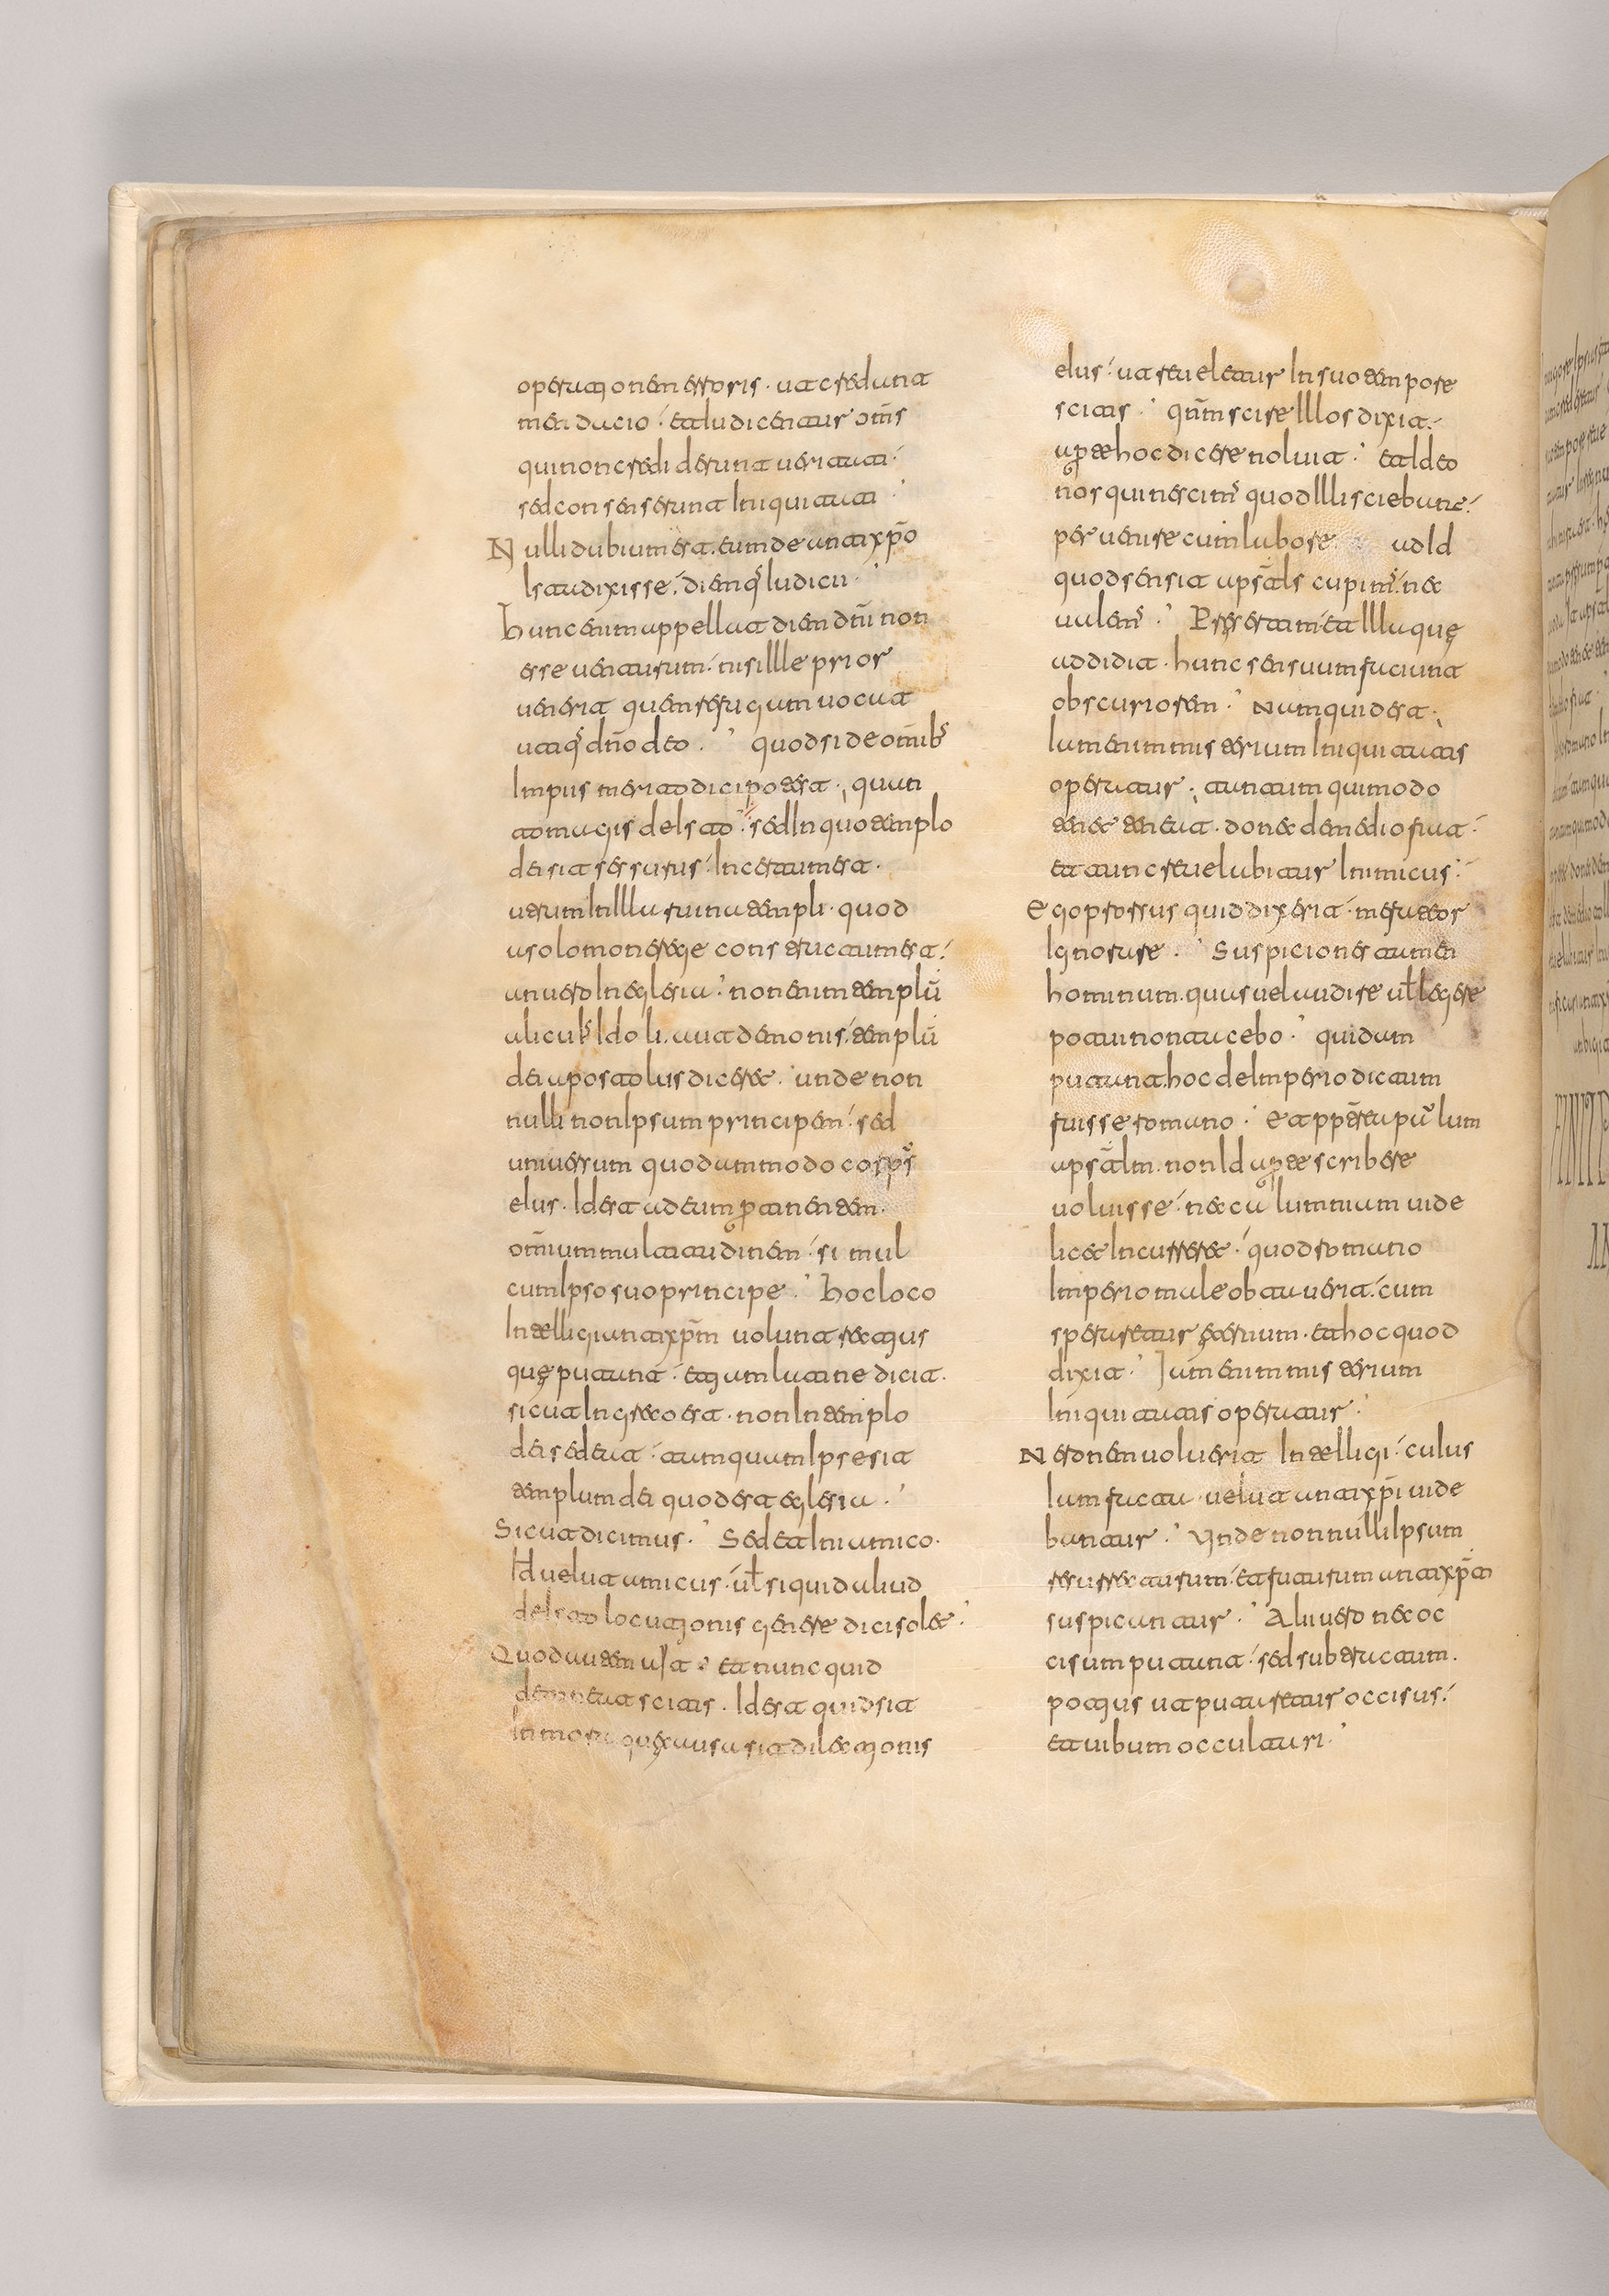 operationem erroris · ut credunt
mendacio : et iudicentur om̅s
qui non crediderunt ueritati ·
sed consenserunt iniquitati :
Nulli dubium est · eum de antixp̅o
ista dixisse : diemq; iudicii ·
hunc enim appellat diem dn̅i non
esse uenturum : nisi ille prior
uenerit quem refugam uocat
utiq; dn̅o deo · quod si de om̅ib;
impiis merito dici potest · quan
to magis de isto · sed in quo templo
dei sit sessurus : incertum est ·
utrum in illa ruina templi · quod
a solomone rege constructum est :
an uero in eglesia · non enim templū
alicui; idoli · aut demonis : templū
dei apostolus diceret · unde non
nulli non ipsum principem : sed
uniuersum quodammodo corp;
eius · id est ad eum ꝑtinentem ·
om̅ium multitudinem : simul
cum ipso suo principe · hoc loco
intelligi antixp̅m uolunt rectius
quę putant : etiam latine dicit ·
sicut in greco est · non in templo
dei sedeat : tamquam ipse sit
templum dei quod est eglesia ·
Sicut dicimus · Sed et in amico ·
Id uelut amicus : ul̅ si quid aliud
de isto locutionis genere dici solet ·
Quod autem ait : et nunc quid
detineat scitis · id est quid sit
in mora quę causa sit dilectionis
eius : ut reueletur in suo tempore
scitis · qm̅ scire illos dixit :
aꝑte hoc dicere noluit · et ideo
nos qui nescim; quod illi sciebant :
peruenire cum labore ad id
quod sensit aps̅tls cupim; nec
ualem; · Presertim et illa quę
addidit · hunc sensum faciunt
obscuriorem · Nam quid est ·
iam enim misterium iniquitatis
operatur · tantum qui modo
tenet teneat · donec de medio fiat :
et tunc reuelabitur inimicus :
Ego prorsus quid dixerit · me fateor
ignorare · Suspiciones tamen
hominum · quas uel audire ul̅ legere
potui non tacebo · quidam
putant hoc de imperio dictum
fuisse romano : et ꝓpterea pau̅lum
aps̅tlm · non id aꝑte scribere
uoluisse : ne calumnium uide
licet incurreret : quod romano
imperio male obtauerit : cum
speraretur ęternum · et hoc quod
dixit · Iam enim misterium
iniquitatis operatur ·
Neronem uoluerit intelligi : cuius
iam facta uelut antixp̅i uide
bantur · Vnde nonnulli ipsum
resurrecturum : et futurum antixp̅m
suspicantur · Alii uero nec oc
cisum putant : sed subtractum ·
potius ut putaretur occisus :
et uibum occultari ·